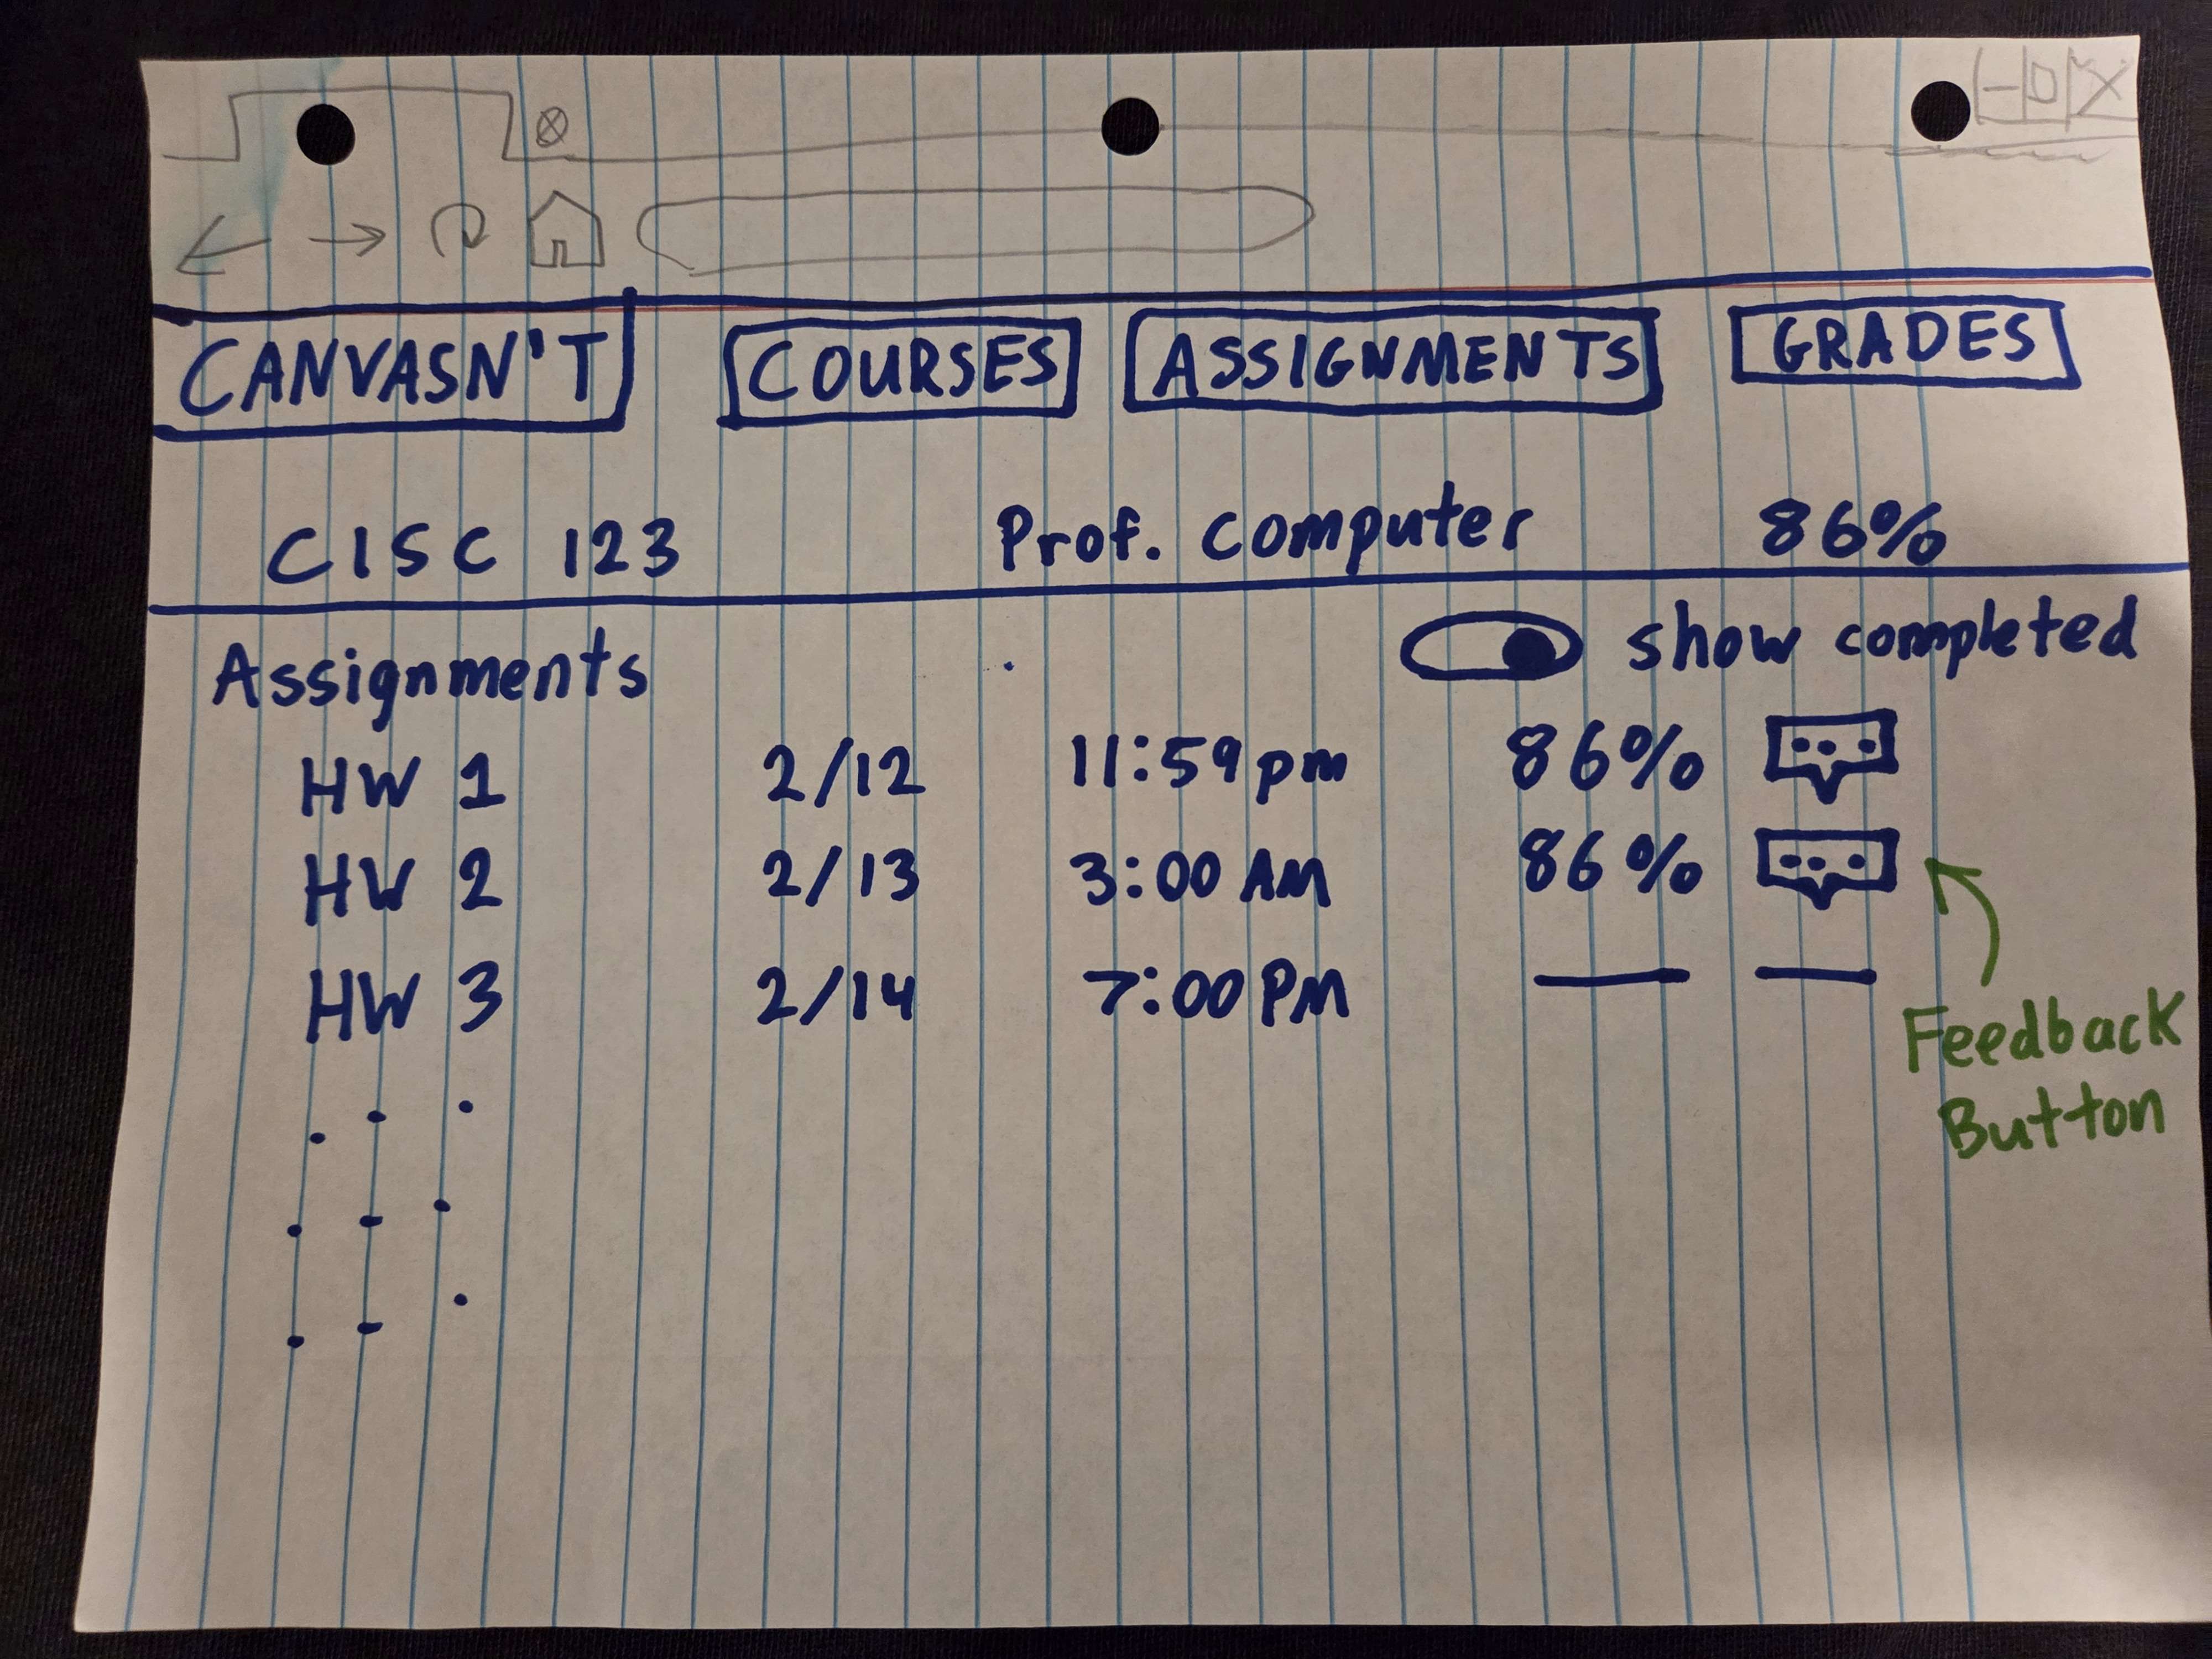 CANVASN'T COURSES ASSIGNMENTS GRADES
CISC 123 Prof. Computer 86%
Assignments show completed
HW 1 2/12 11:59pm 86%
HW 2 2/13 3:00 AM 86%
HW 3 2/14 7:00 PM — —
Feedback
Button